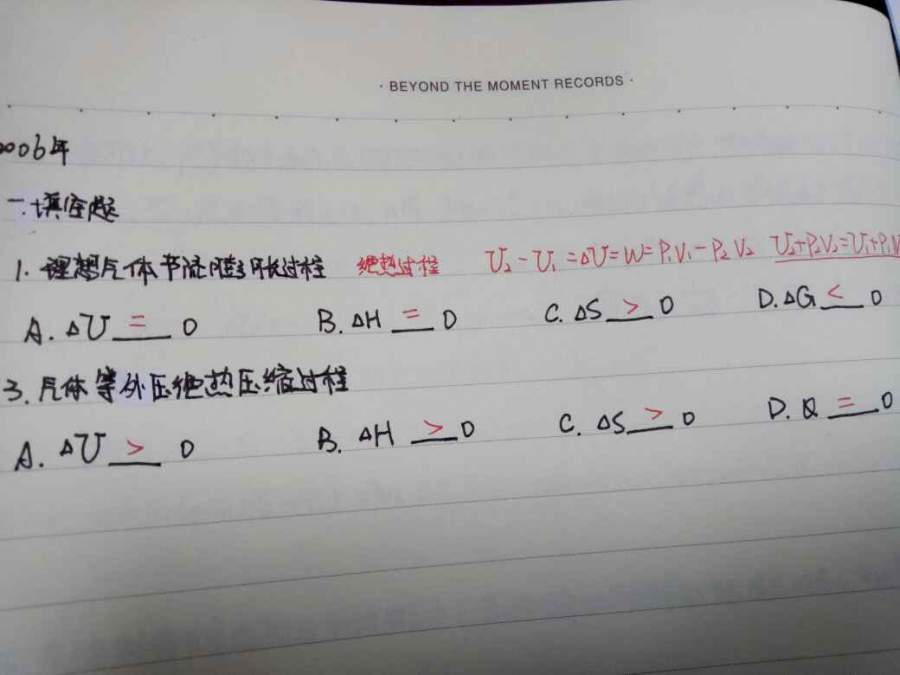 · BEYOND THE MOMENT RECORDS ·
2006年
一.填空题
1. 理想气体节流膨胀过程 绝热过程 U₂-U₁=ΔU=W=P₁V₁-P₂V₂ U₂+P₂V₂=U₁+P₁V
A. ΔU = 0 B. ΔH = 0 C. ΔS > 0 D. ΔG < 0
3. 气体等外压绝热压缩过程
A. ΔU > 0 B. ΔH > 0 C. ΔS > 0 D. Q = 0